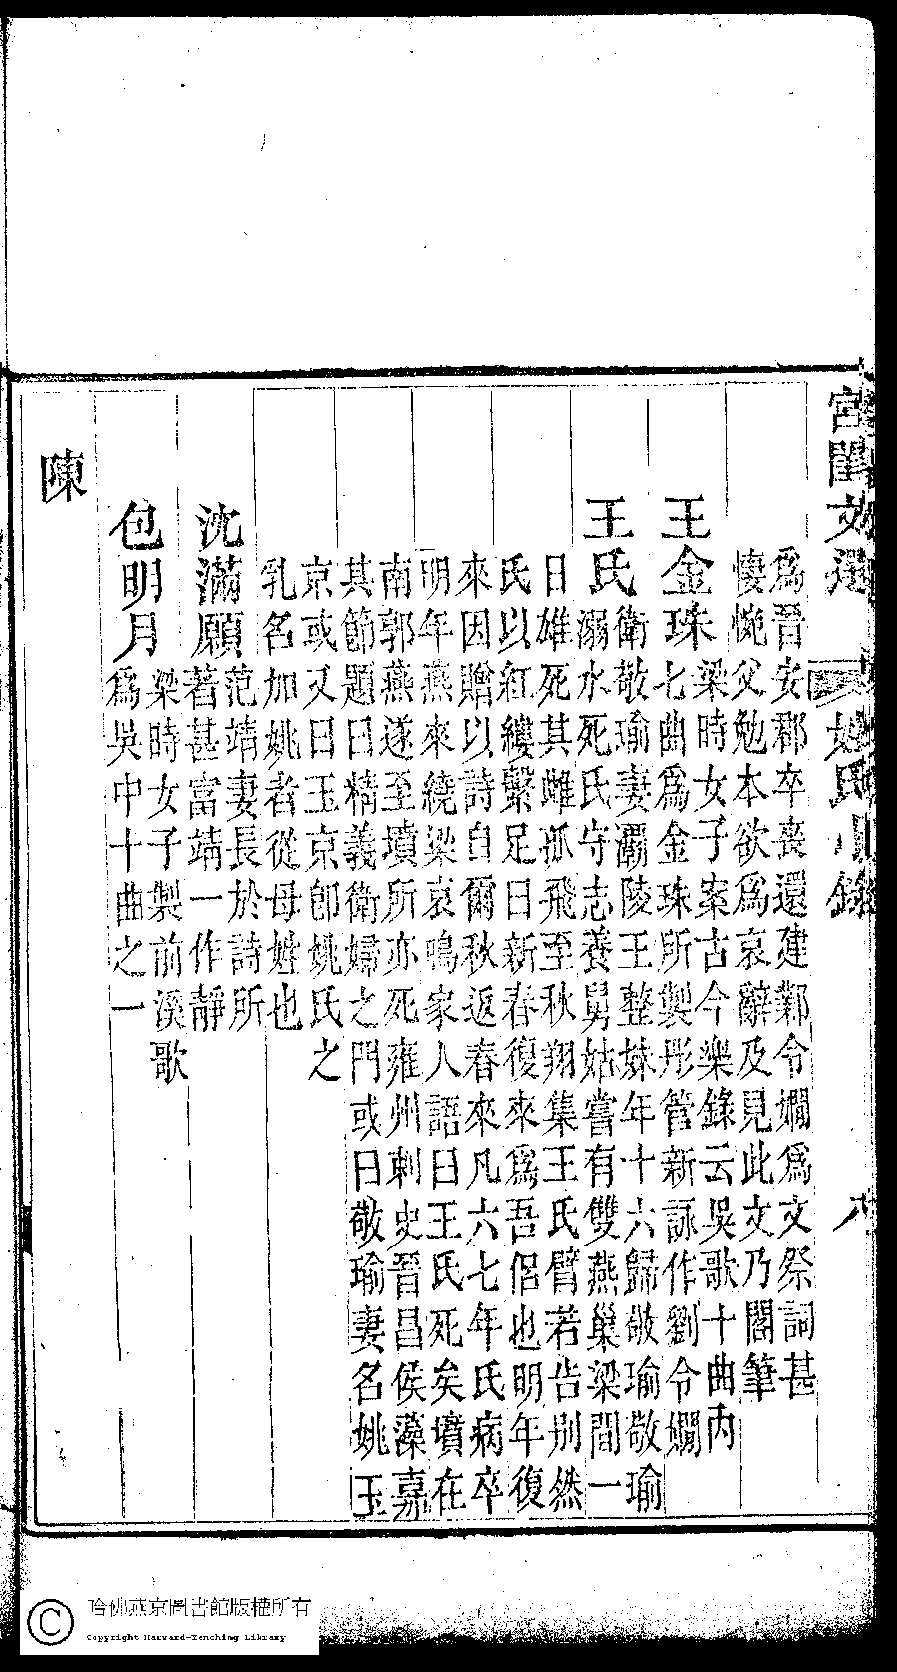 宮閨文選 姓氏小錄 八
爲晉安郡卒喪還建鄴令嫺爲文祭詞甚
悽惋父勉本欲爲哀辭及見此文乃閣筆
王金珠梁時女子案古今樂錄云吳歌十曲內
七曲爲金珠所製彤管新詠作劉令嫺
王氏衛敬瑜妻灞陵王整妹年十六歸敬瑜敬瑜
溺水死氏守志養舅姑嘗有雙燕巢梁間一
日雄死其雌孤飛至秋翔集王氏臂若告別然
氏以紅縷繫足曰新春復來爲吾侶也明年復
來因贈以詩自爾秋返春來凡六七年氏病卒
明年燕來繞梁哀鳴家人語曰王氏死矣墳在
南郭燕遂至墳所亦死雍州刺史晉昌侯藻嘉
其節題曰精義衛婦之門或曰敬瑜妻名姚玉
京或又曰玉京卽姚氏之
乳名加姚者從母姓也
沈滿願范靖妻長於詩所
著甚富靖一作靜
包明月梁時女子製前溪歌
爲吳中十曲之一
陳
哈佛燕京圖書館版權所有
Copyright Harvard-Yenching Library